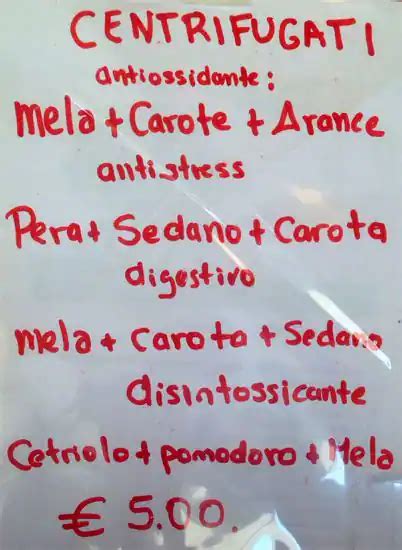 CENTRIFUGATI
antiossidante:
Mela + Carote + Arance
antistress
Pera + Sedano + Carota
digestivo
mela + carota + Sedano
disintossicante
Cetriolo + pomodoro + Mela
€ 5.00.